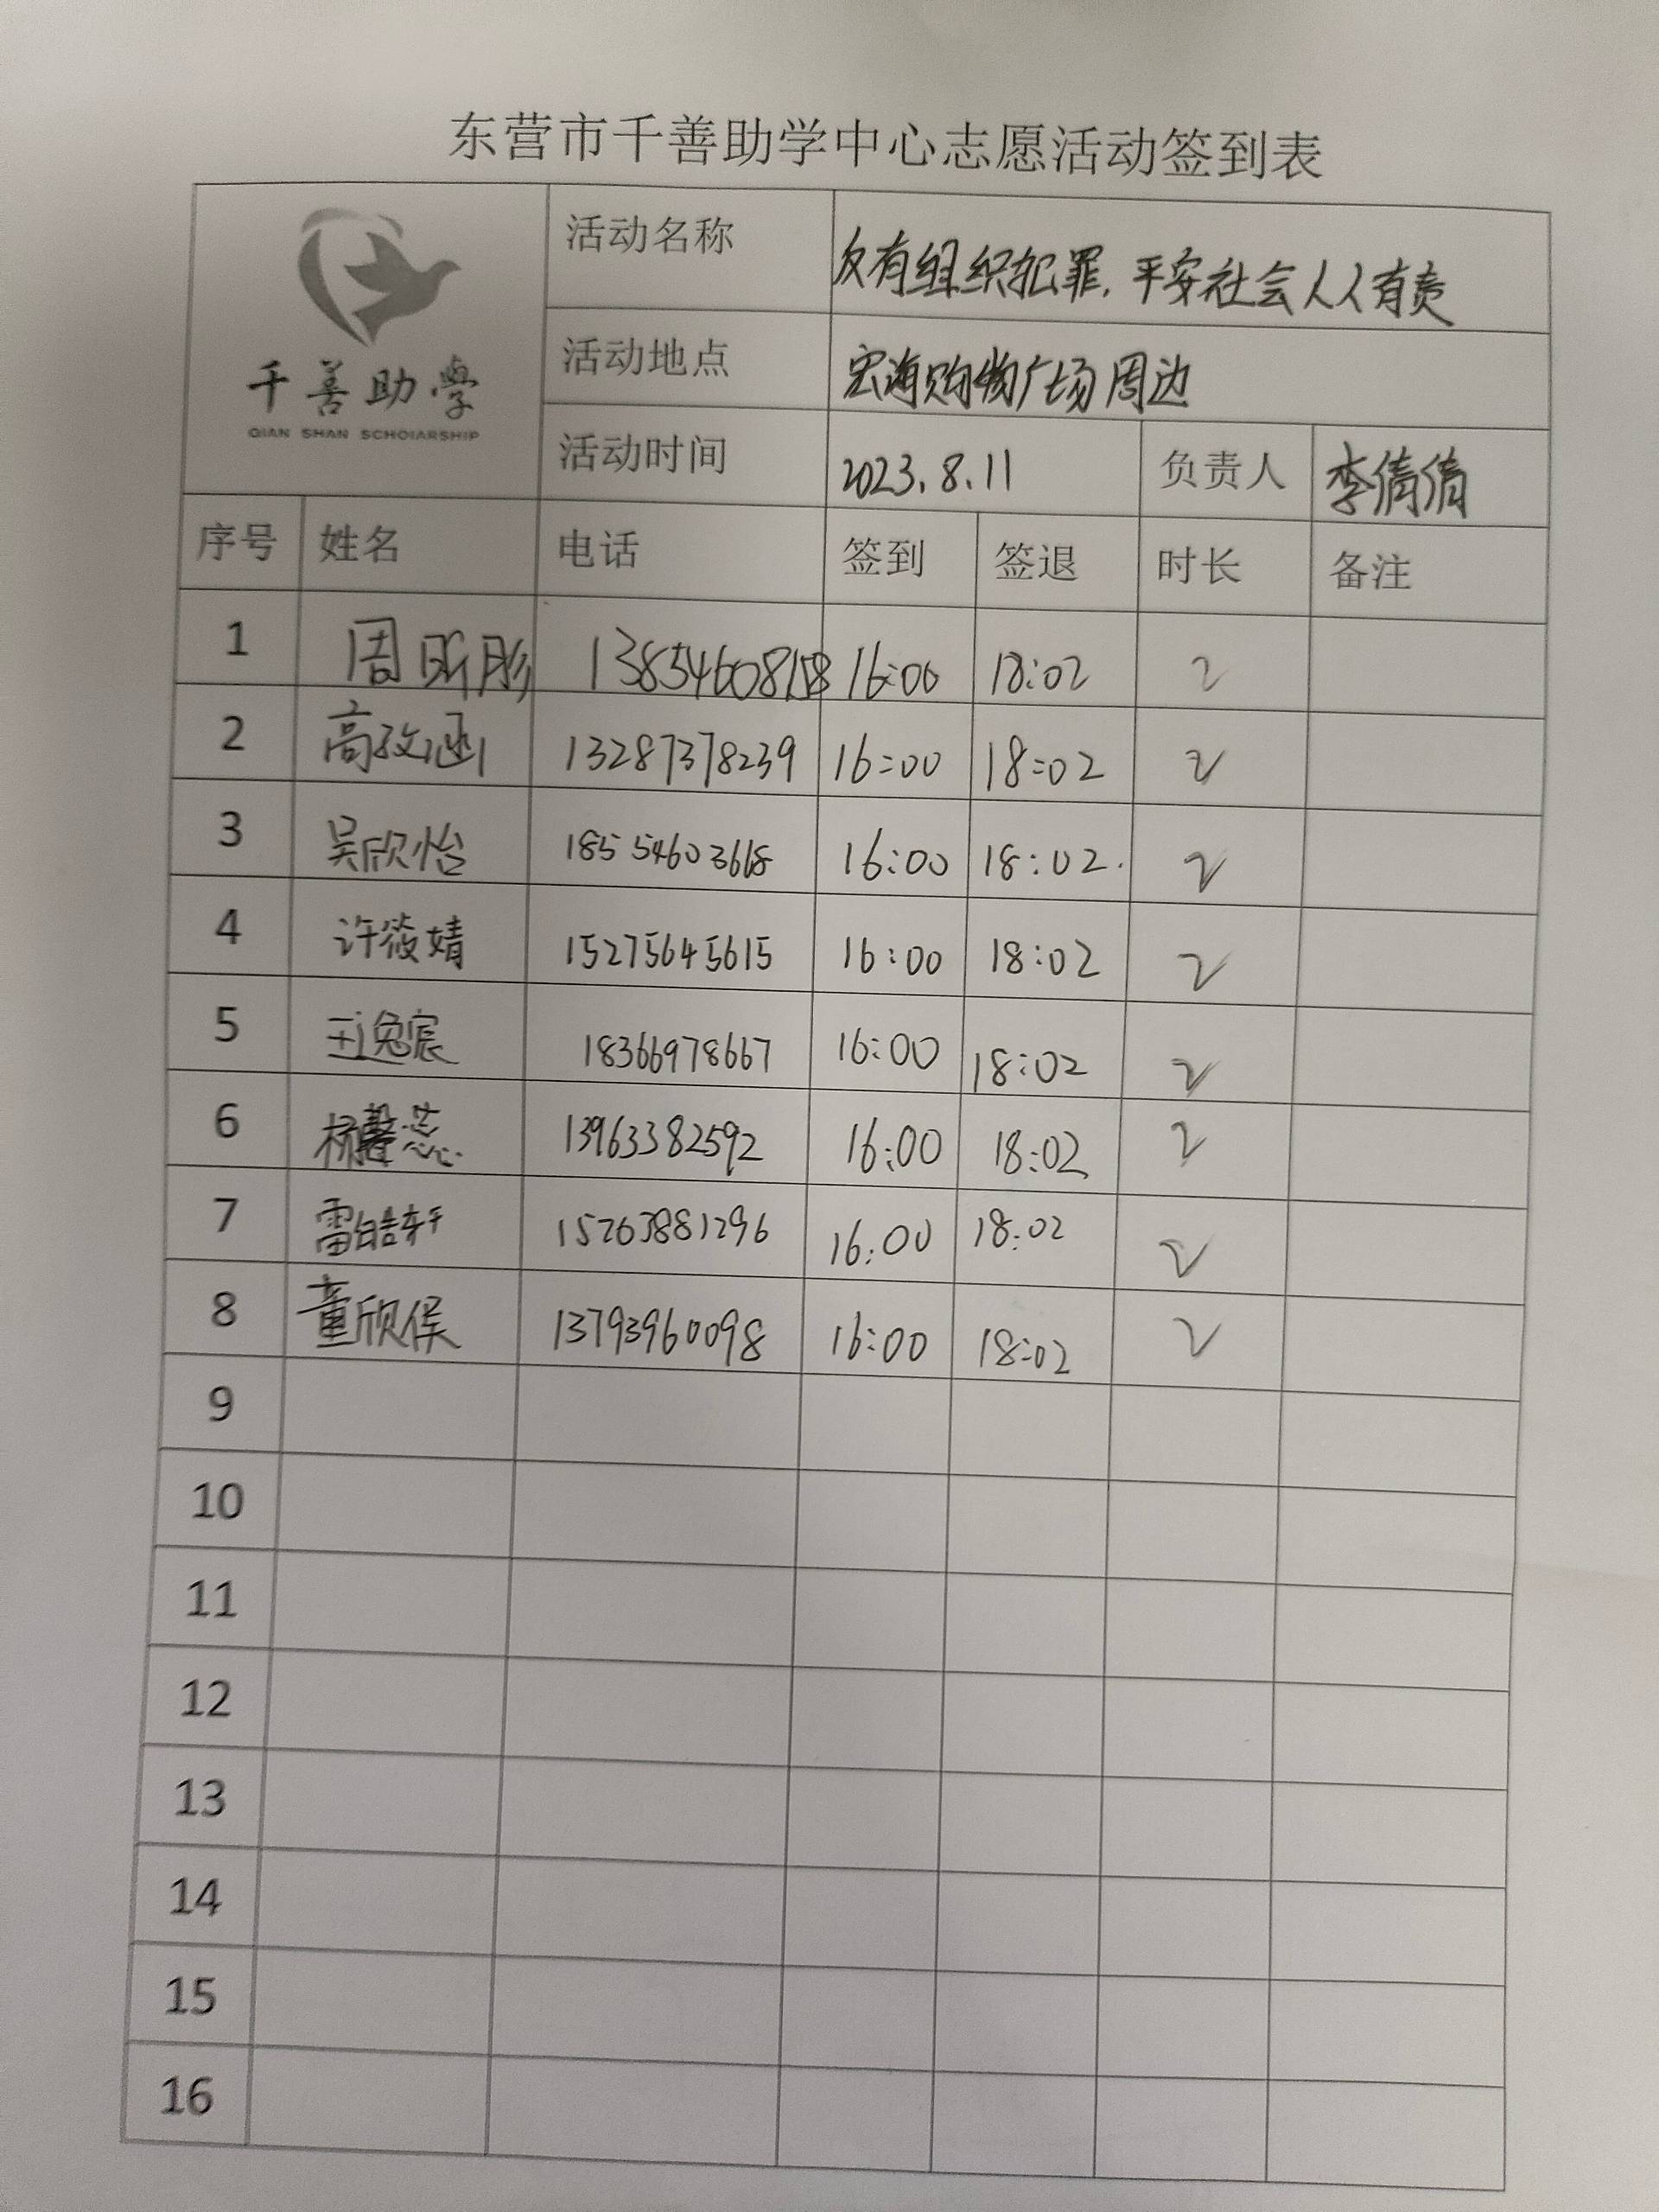 东营市千善助学中心志愿活动签到表
千善助學
QIAN SHAN SCHOIARSHIP
活动名称 反有组织犯罪,平安社会人人有责
活动地点 宏海购物广场周边
活动时间 2023.8.11 负责人 李倩倩
序号 姓名 电话 签到 签退 时长 备注
1 周昕彤 13854608158 16:00 18:02 2
2 高孜涵 13287378239 16:00 18:02 2
3 吴欣怡 18554603668 16:00 18:02. 2
4 许筱婧 15275645615 16:00 18:02 2
5 18366978667 16:00 18:02 2
6 杨馨蕊 13963382592 16:00 18:02 2
7 雷皓轩 15263881296 16:00 18:02 2
8 董欣俣 13793960098 16:00 18:02 2
9
10
11
12
13
14
15
16